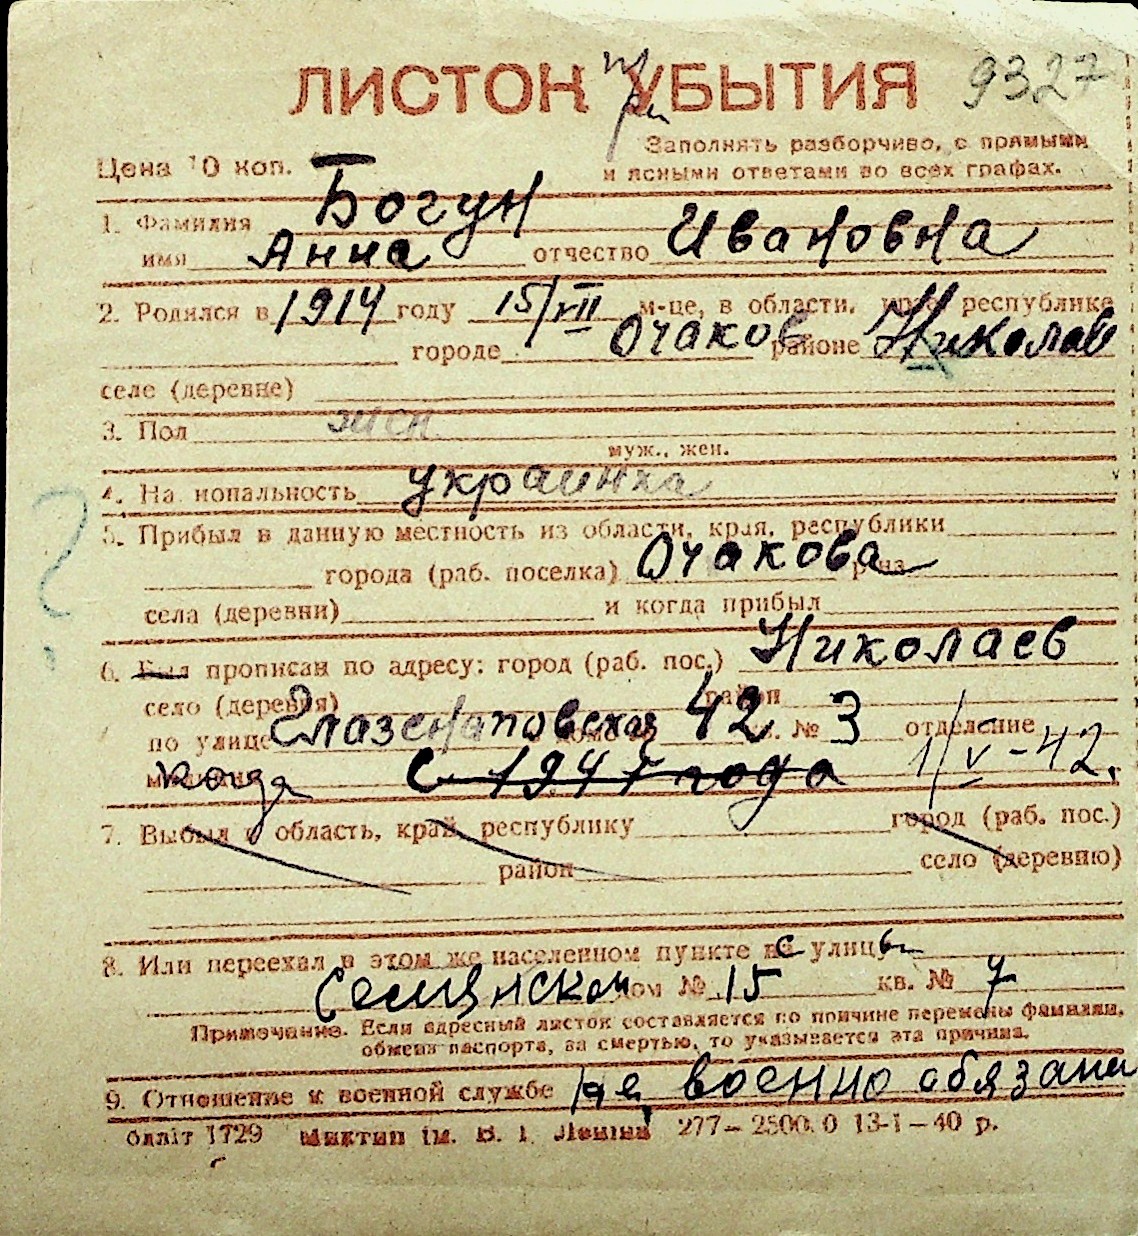 ЛИСТОК УБЫТИЯ 9327
при
Заполнять разборчиво, с прямыми
Цена 10 коп. и ясными ответами во всех графах.
1. Фамилия Богун
имя Анна отчество Ивановна
2. Родился в 1914 году 15/VII м-це, в области, край, республике
городе Очаков районе Николаев
селе (деревне)
3. Пол жен
муж., жен.
4. Национальность украинка
5. Прибыл в данную местность из области, края, республики
города (раб. поселка) Очакова р-на
села (деревни) и когда прибыл
6. Был прописан по адресу: город (раб. пос.) Николаев
село (деревня) район
по улице Глазенаповская 42 кв. № 3 отделение
когда с 1941 года 1/V-42.
7. Выбыл в область, край, республику город (раб. пос.)
район село (деревню)
8. Или переехал в этом же населенном пункте с улицы
дом № 15 кв. № 7
Примечание. Если адресный листок составляется по причине перемены фамилии,
обмена паспорта, за смертью, то указывается эта причина.
9. Отношение к военной службе не военно обязана
Облліт 1729 ім. В. І. Леніна 277–2500.0 13-1–40 р.